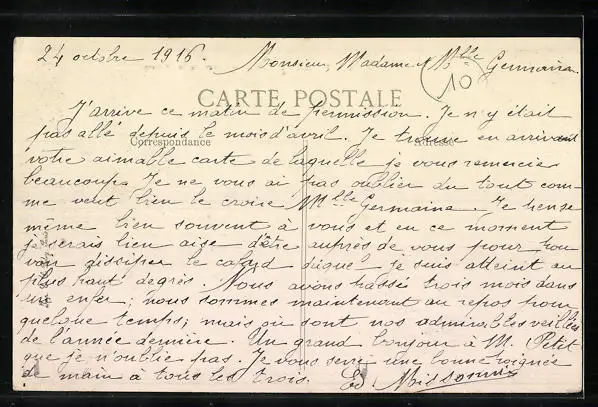 24 octobre 1916. Monsieur, Madame & Mlle Germaina.
10
CARTE POSTALE
J'arrive ce matin de permission. Je n'y était
pas allé depuis le mois d'avril. Je trouve en arrivant
Correspondance
Adresse
votre aimable carte de laquelle je vous remercie
beaucoup. Je ne vous ai pas oublier du tout com-
me veut bien le croire Mlle Germaina. Je pense
même bien souvent à vous et en ce moment
je serais bien aise d'être auprès de vous pour pou
voir dissiper le cafard duquel je suis atteint au
plus haut degrés. Nous avons passé trois mois dans
un enfer; nous sommes maintenant au repos pour
quelque temps; mais ou sont nos admirables veillées
de l'année dernière. Un grand bonjour à M. Petit
que je n'oublie pas. Je vous serre une bonne poignée
de main à tous les trois. Ed